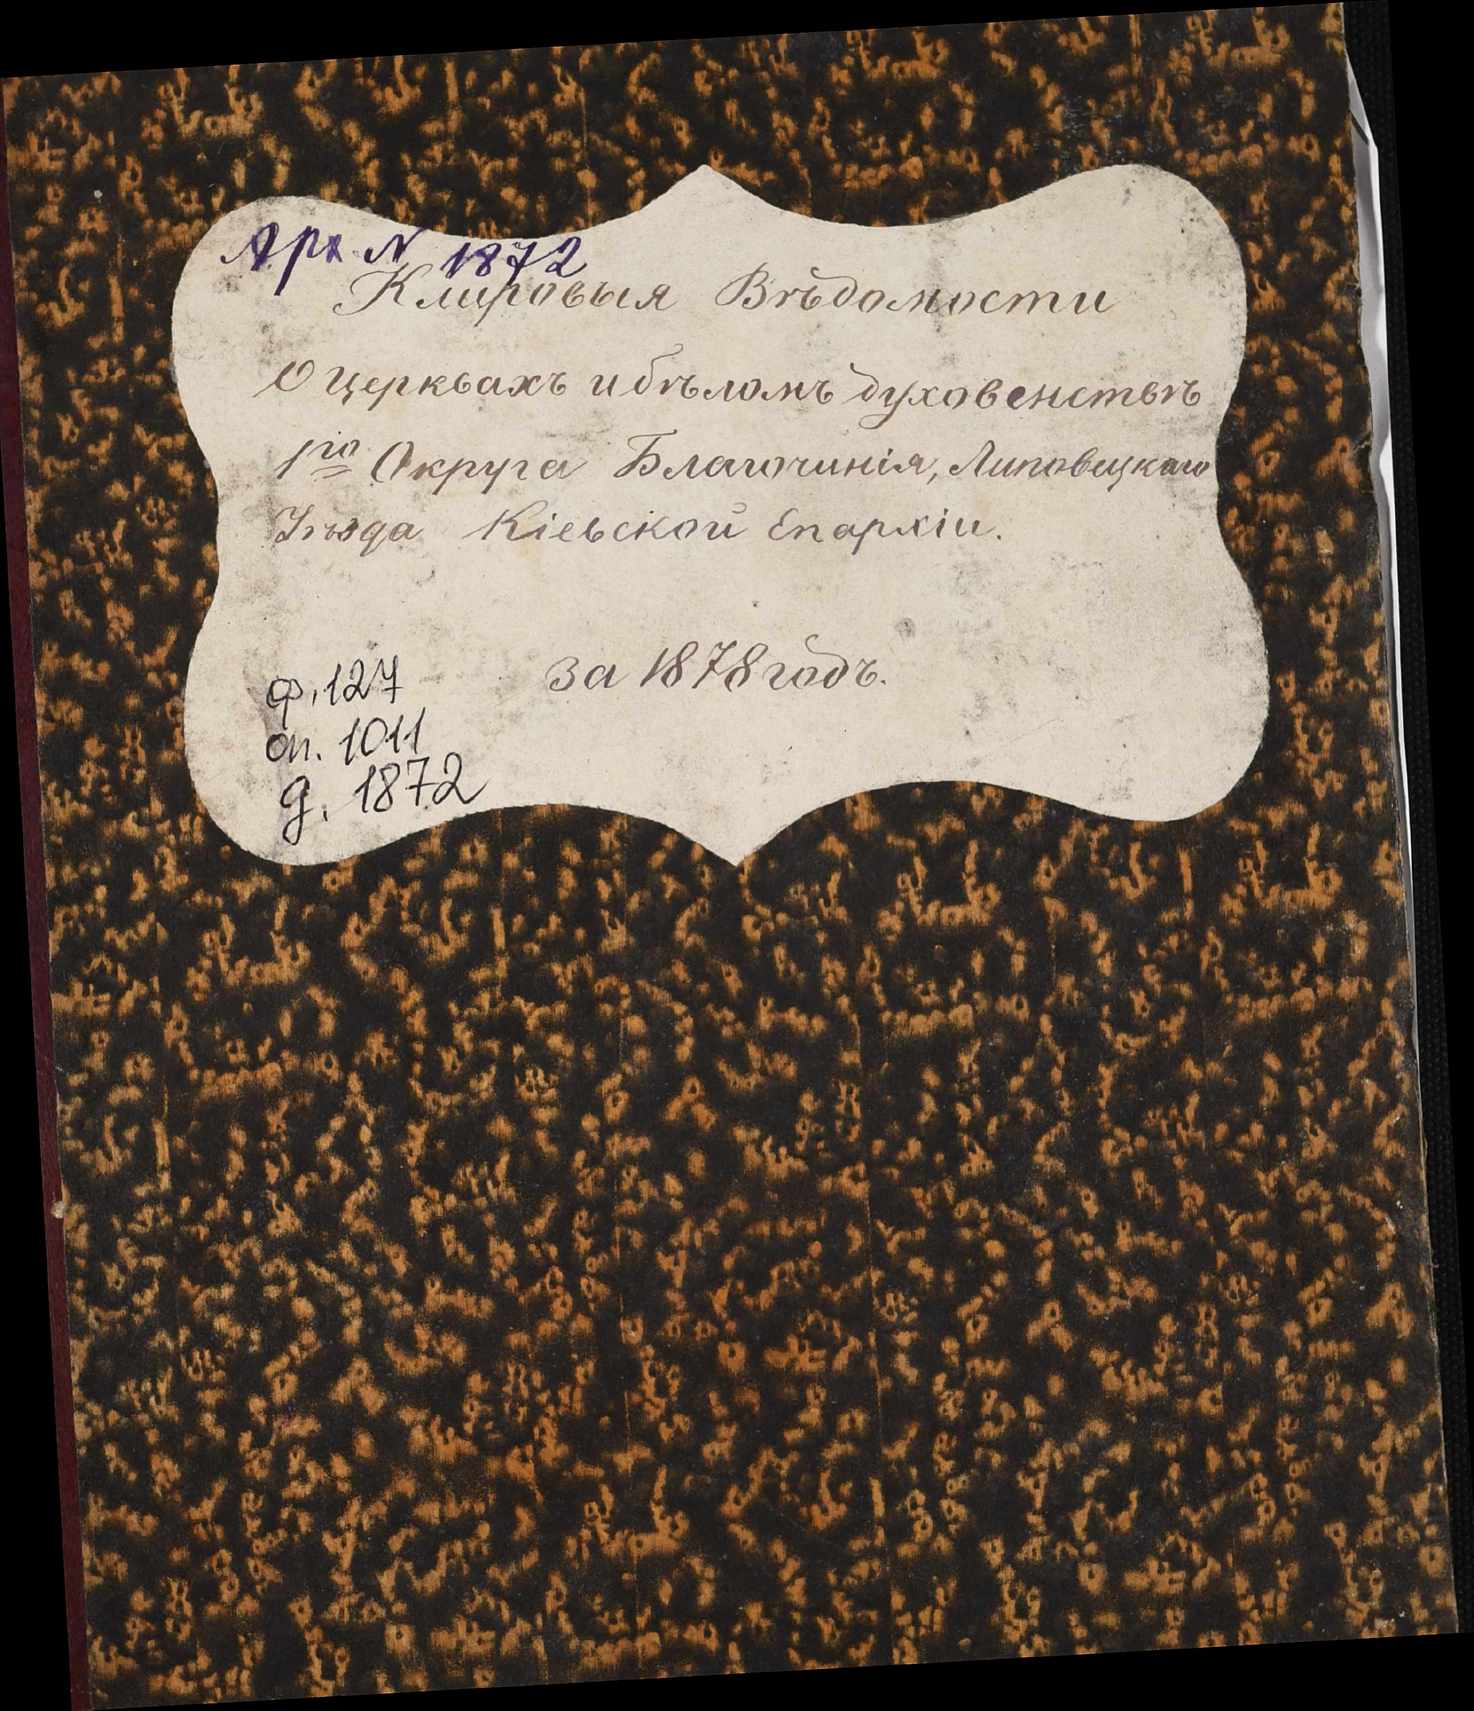 Арх. N 1872
Клировыя Вѣдомости
О церквахъ и бѣломъ духовенствѣ
1го Округа Благочинія, Липовецкаго
Уѣзда Кіевской Епархіи.
за 1878 годъ.
ф. 127
оп. 1011
д. 1872